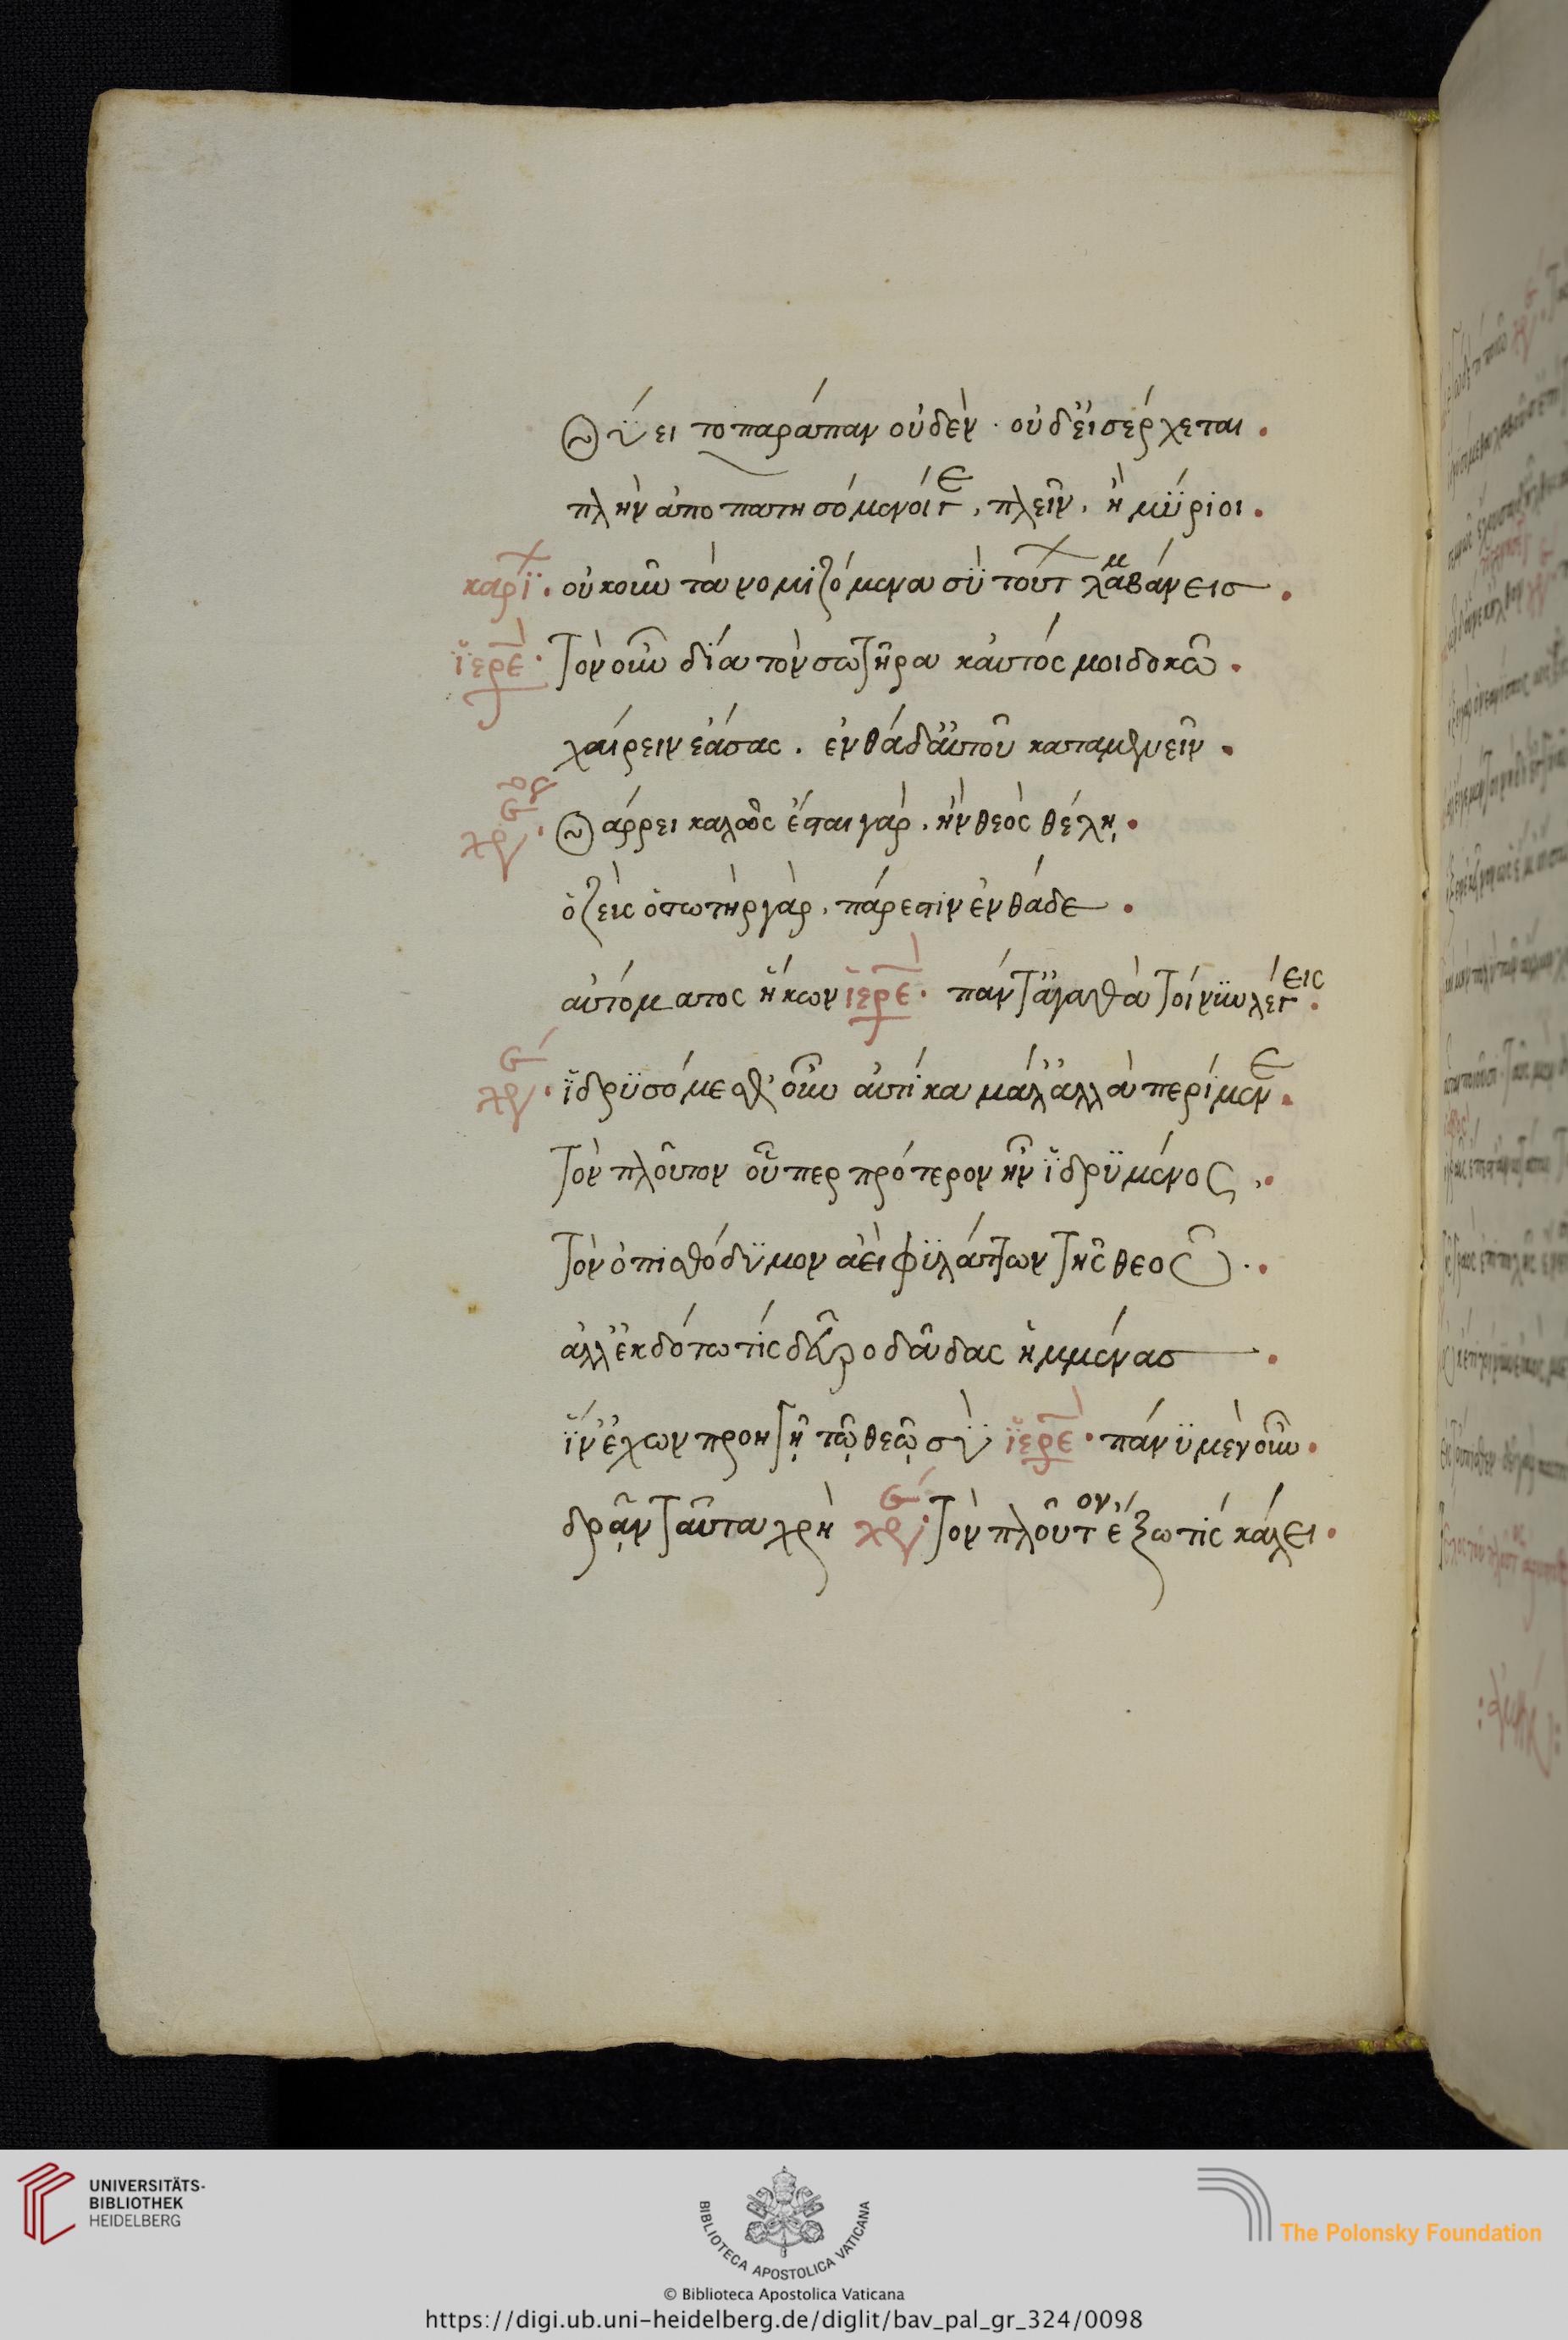 Θύει τοπαράπαν οὐδὲν · οὐδ' εἰσέρχεται .
πλὴν ἀποπατησόμενοί γε , πλεῖν , ἢ μΰριοι .
καρΐ. οὐκοῦν τὰ νομιζόμενα σὺ τούτ λαμβάνεισ .
ἱερὲ· τὸν οὖν δία τὸν σωτῆρα καὐτός μοι δοκῶ .
χαίρειν ἐάσας . ἐνθάδ' αὐτοῦ καταμενεῖν .
χρε. Θάρρει καλῶς ἔσται γὰρ , ἢν θεὸς θέλη .
ὁ ζεὺς ὁ σωτὴρ γὰρ , πάρεστιν ἐνθάδε .
αὐτόματος ἥκων ἱερὲ· πάντ' ἀγαθὰ τοίνυν λέγεις .
χρε· ἱδρϋσόμεσθ' οὖν αὐτίκα μάλ' ἀλλὰ περίμενε .
τὸν πλοῦτον οὗπερ πρότερον ἦν ἱδρϋμένος ,.
τὸν ὀπισθόδϋμον ἀεὶ φϋλάττων τῆς θεοῦ .
ἀλλ' ἐκδότω τίς δεῦρο δᾶδας ἡμμένας .
ἵν' ἔχων προηγῇ τῷ θεῷ σὺ ἱερὲ· πάνϋ μὲν οὖν .
δρᾷν ταῦτα χρὴ χρε· τὸν πλοῦτον ἔξω τίς κάλει .
UNIVERSITÄTS-
BIBLIOTHEK
HEIDELBERG
BIBLIOTECA APOSTOLICA VATICANA
The Polonsky Foundation
© Biblioteca Apostolica Vaticana
https://digi.ub.uni-heidelberg.de/diglit/bav_pal_gr_324/0098